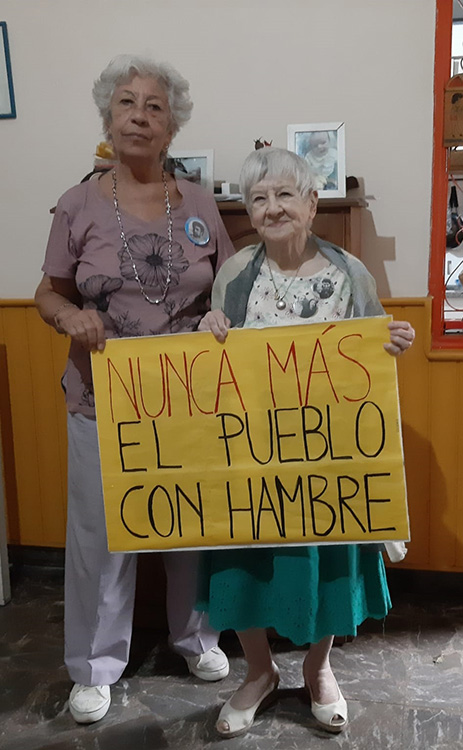 NUNCA MÁS
EL PUEBLO
CON HAMBRE